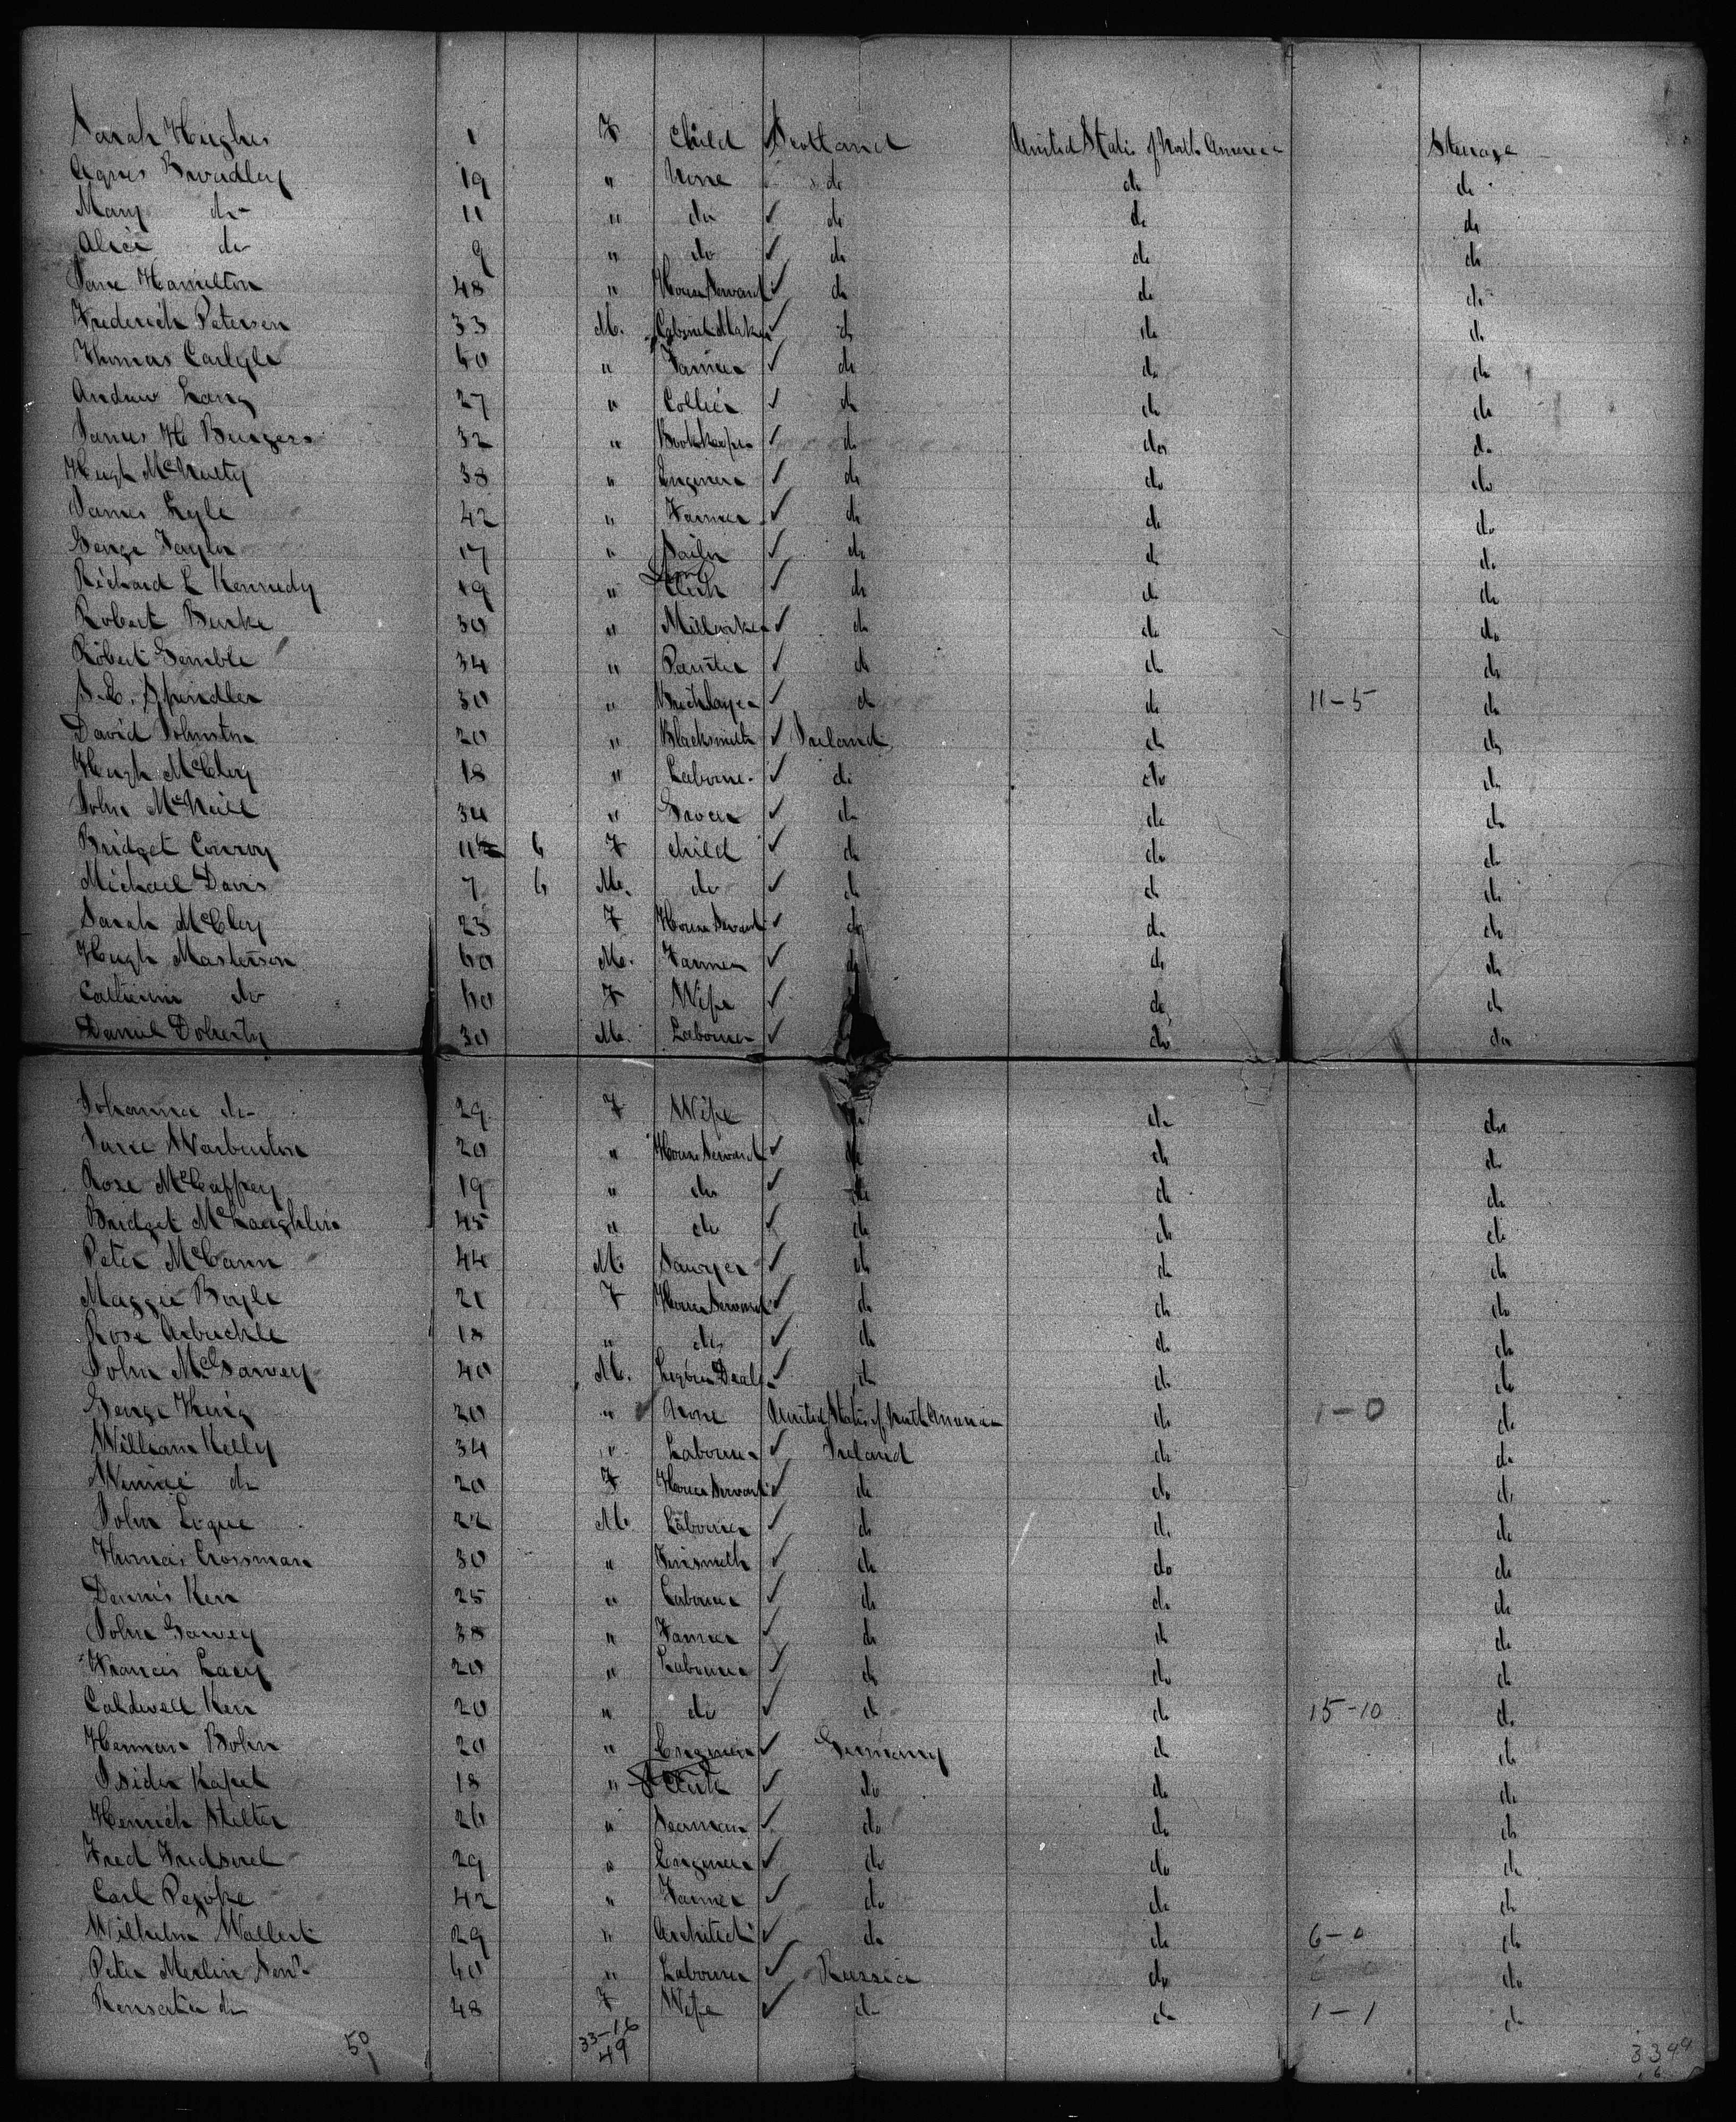 Sarah Hughes 1 F Child Scotland United States of North America Steerage
Agnes 19 " None do do do
Mary do 11 " do do do do
Alice do 9 " do do do do
Jane Hamilton 48 " House Servant do do do
Frederick Petersen 33 M. Cabinet Maker do do do
Thomas Carlyle 60 " Farmer do do do
Andrew Lang 27 " Collier do do do
James H 32 " Bookkeeper do do do
Hugh McNulty 38 " Engineer do do do
James Lyle 42 " Farmer do do do
George Taylor 17 " Sailor do do do
Richard L Kennedy 19 " Clerk do do do
Robert Burke 30 " do do do
Robert Gemble 34 " Painter do do do
30 " Bricklayer do do 11-5 do
David Johnston 20 " Blacksmith Ireland do do
Hugh McCloy 18 " Labourer do do do
John McNeill 34 " Grocer do do do
Bridget Conroy 11 6 F Child do do do
Michael Davis 7 6 M. do do do do
Sarah McCloy 23 F House Servant do do do
Hugh Masterson 60 M. Farmer do do do
Catherine do 60 F Wife do do
Daniel Doherty 30 M. Labourer do do
Johanna do 29 F Wife do do do
Jane Warburton 20 " House Servant do do do
Rose McCaffrey 19 " do do do do
Bridget McLaughlin 45 " do do do do
Peter McCann 44 M. Sawyer do do do
Maggie Boyle 21 F House Servant do do do
Rose Arbuckle 18 " do do do do
John McGarvey 40 M. do do do
George King 20 " None United States of North America do 1-0 do
William Kelly 34 " Labourer Ireland do do
Winnie do 20 F House Servant do do do
John Logue 22 M. Labourer do do do
Thomas Crossman 30 " Tinsmith do do do
Dennis Kerr 25 " Labourer do do do
John Garvey 38 " Farmer do do do
Francis Lacey 20 " Labourer do do do
Caldwell Kerr 20 " do do do 15-10 do
Herman Bohn 20 " Engineer Germany do do
Isidor 18 " Clerk do do do
Heinrich Stelter 26 " Seaman do do do
Fred 29 " Engineer do do do
Carl 42 " Farmer do do do
Wilhelm Wallert 29 " Architect do do 6-0 do
Peter Merlin Senr 60 " Labourer Russia do do
do 48 F Wife do do 1-1 do
50 33-16
49